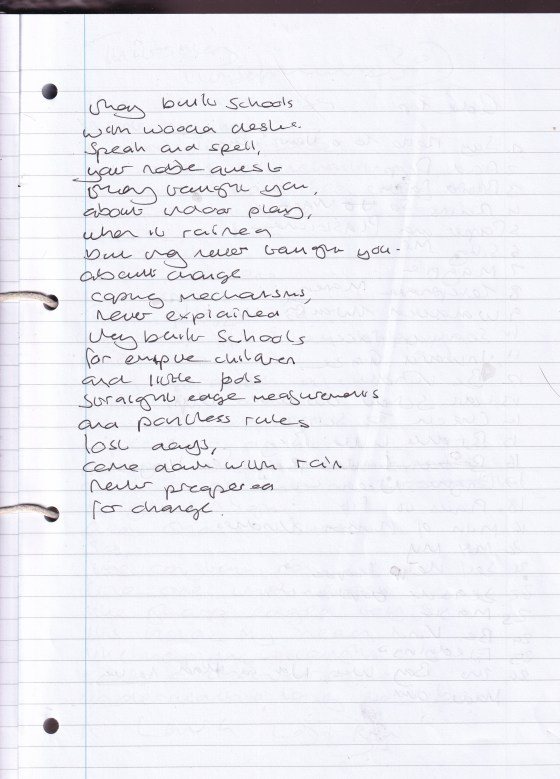 they built schools
with wooden desks.
Speak and spell,
your noble quest
they taught you,
about indoor play,
when it rained
but never taught you.
about change
coping mechanisms,
never explained
they built schools
for empire children
and little
straight edge measurements
and pointless rules
lost days,
came down with rain
never preapered
for change.